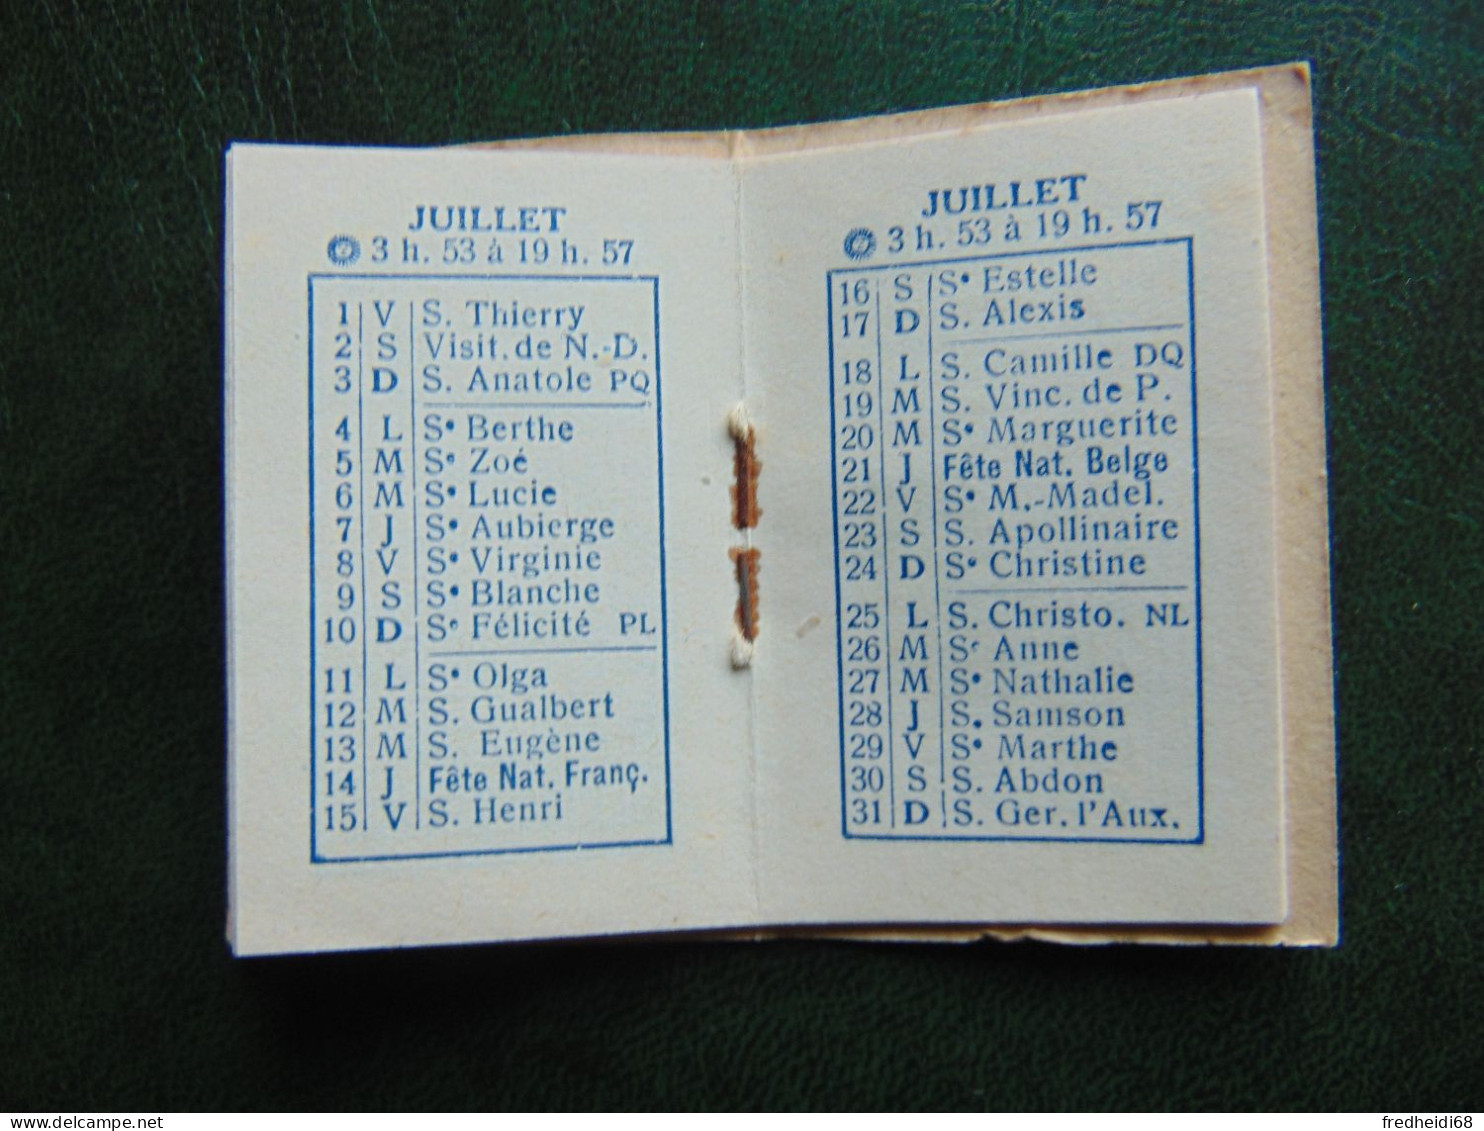 JUILLET
3 h. 53 à 19 h. 57
1 V S. Thierry
2 S Visit. de N.-D.
3 D S. Anatole PQ
4 L Sᵉ Berthe
5 M Sᵉ Zoé
6 M Sᵉ Lucie
7 J Sᵉ Aubierge
8 V Sᵉ Virginie
9 S Sᵉ Blanche
10 D Sᵉ Félicité PL
11 L Sᵉ Olga
12 M S. Gualbert
13 M S. Eugène
14 J Fête Nat. Franç.
15 V S. Henri
JUILLET
3 h. 53 à 19 h. 57
16 S Sᵉ Estelle
17 D S. Alexis
18 L S. Camille DQ
19 M S. Vinc. de P.
20 M Sᵉ Marguerite
21 J Fête Nat. Belge
22 V Sᵉ M.-Madel.
23 S S. Apollinaire
24 D Sᵉ Christine
25 L S. Christo. NL
26 M Sᵉ Anne
27 M Sᵉ Nathalie
28 J S. Samson
29 V Sᵉ Marthe
30 S S. Abdon
31 D S. Ger. l'Aux.
delcampe.net
fredheidi68